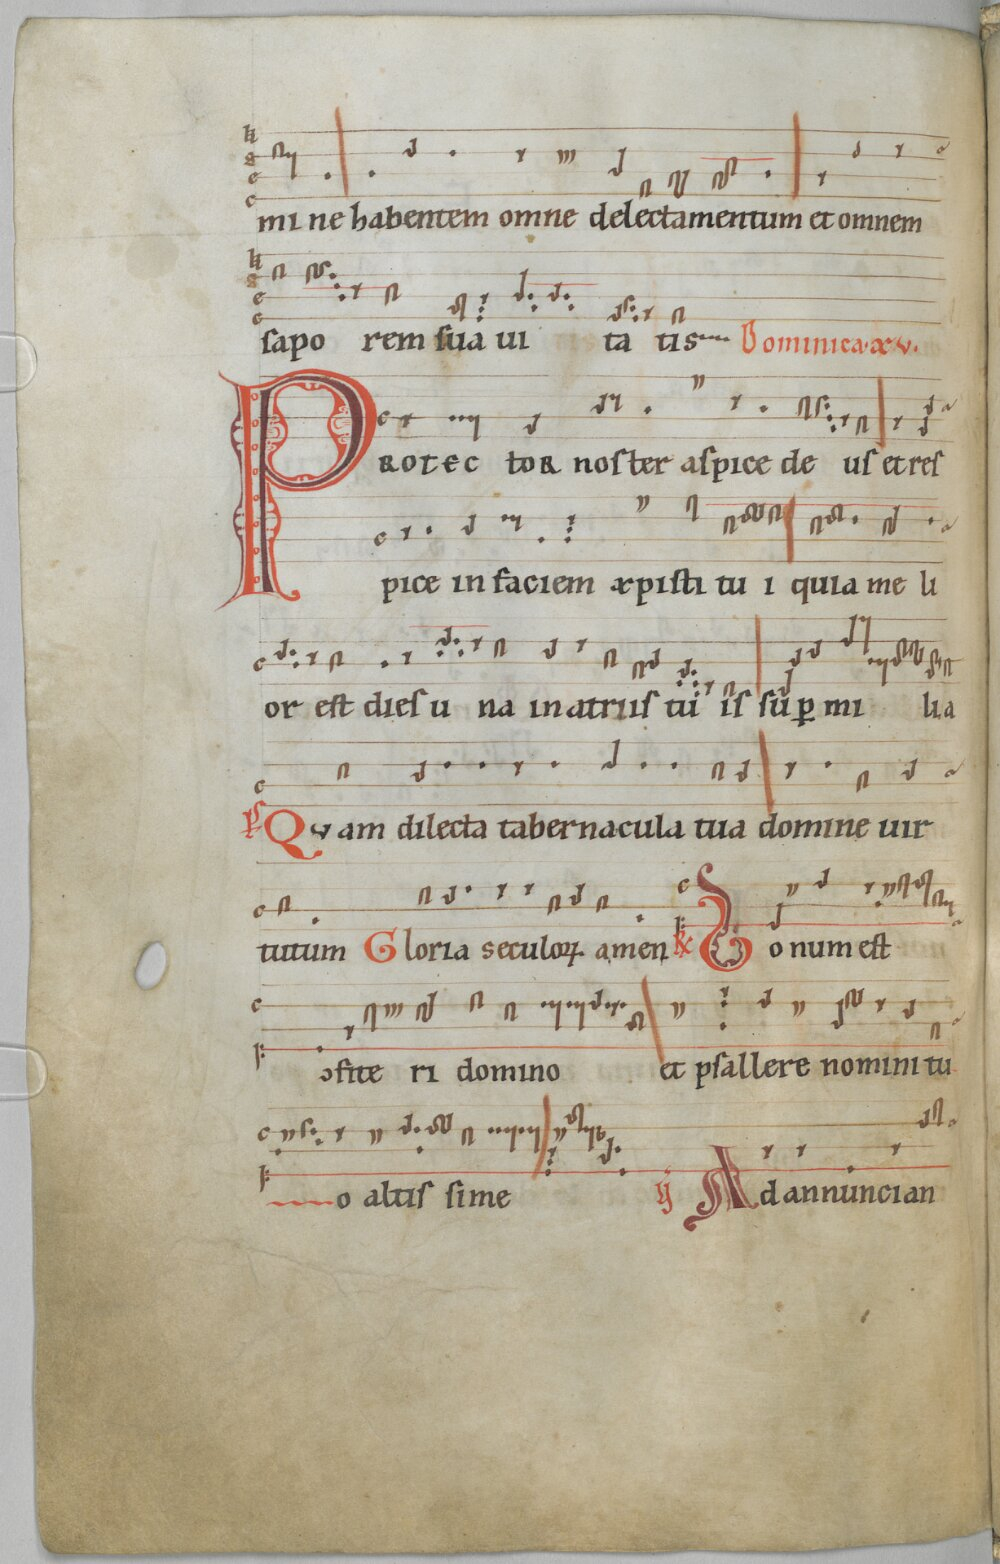 mine habentem omne delectamentum et omnem
saporem suaui tatis Dominica xv.
PROTECTOR noster aspice deus et res
pice in faciem xpisti tui quia meli
or est dies una in atriis tuis sup mi lia
ps Quam dilecta tabernacula tua domine uir
tutum Gloria seculoꝝ amen R Bonum est
ↄfiteri domino et psallere nomini tu
o altissime ꝟ Ad annuncian